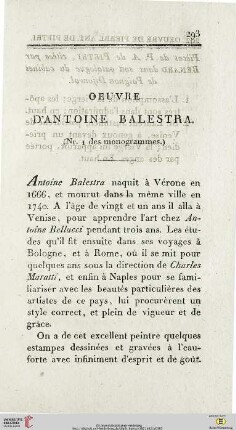 293
OEUVRE
D'ANTOINE BALESTRA.
(Nr. 4 des monogrammes.)
Antoine Balestra naquit à Vérone en
1666, et mourut dans la même ville en
1740. A l'âge de vingt et un ans il alla à
Venise, pour apprendre l'art chez An-
toine Bellucci pendant trois ans. Les étu-
des qu'il fit ensuite dans ses voyages à
Bologne, et à Rome, où il se mit pour
quelques ans sous la direction de Charles
Maratti, et enfin à Naples pour se fami-
liariser avec les beautés particulières des
artistes de ce pays, lui procurèrent un
style correct, et plein de vigueur et de
grâce.
On a de cet excellent peintre quelques
estampes dessinées et gravées à l'eau-
forte avec infiniment d'esprit et de goût.